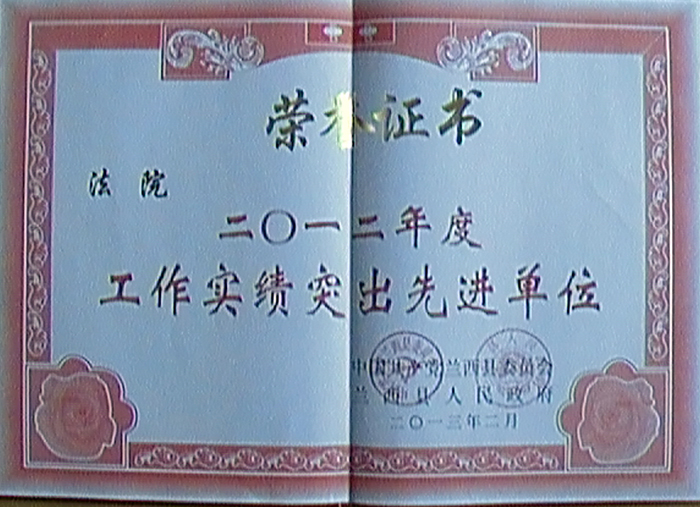 荣誉证书
法院
二〇一二年度
工作实绩突出先进单位
中国共产党兰西县委员会
兰西县人民政府
二〇一三年二月